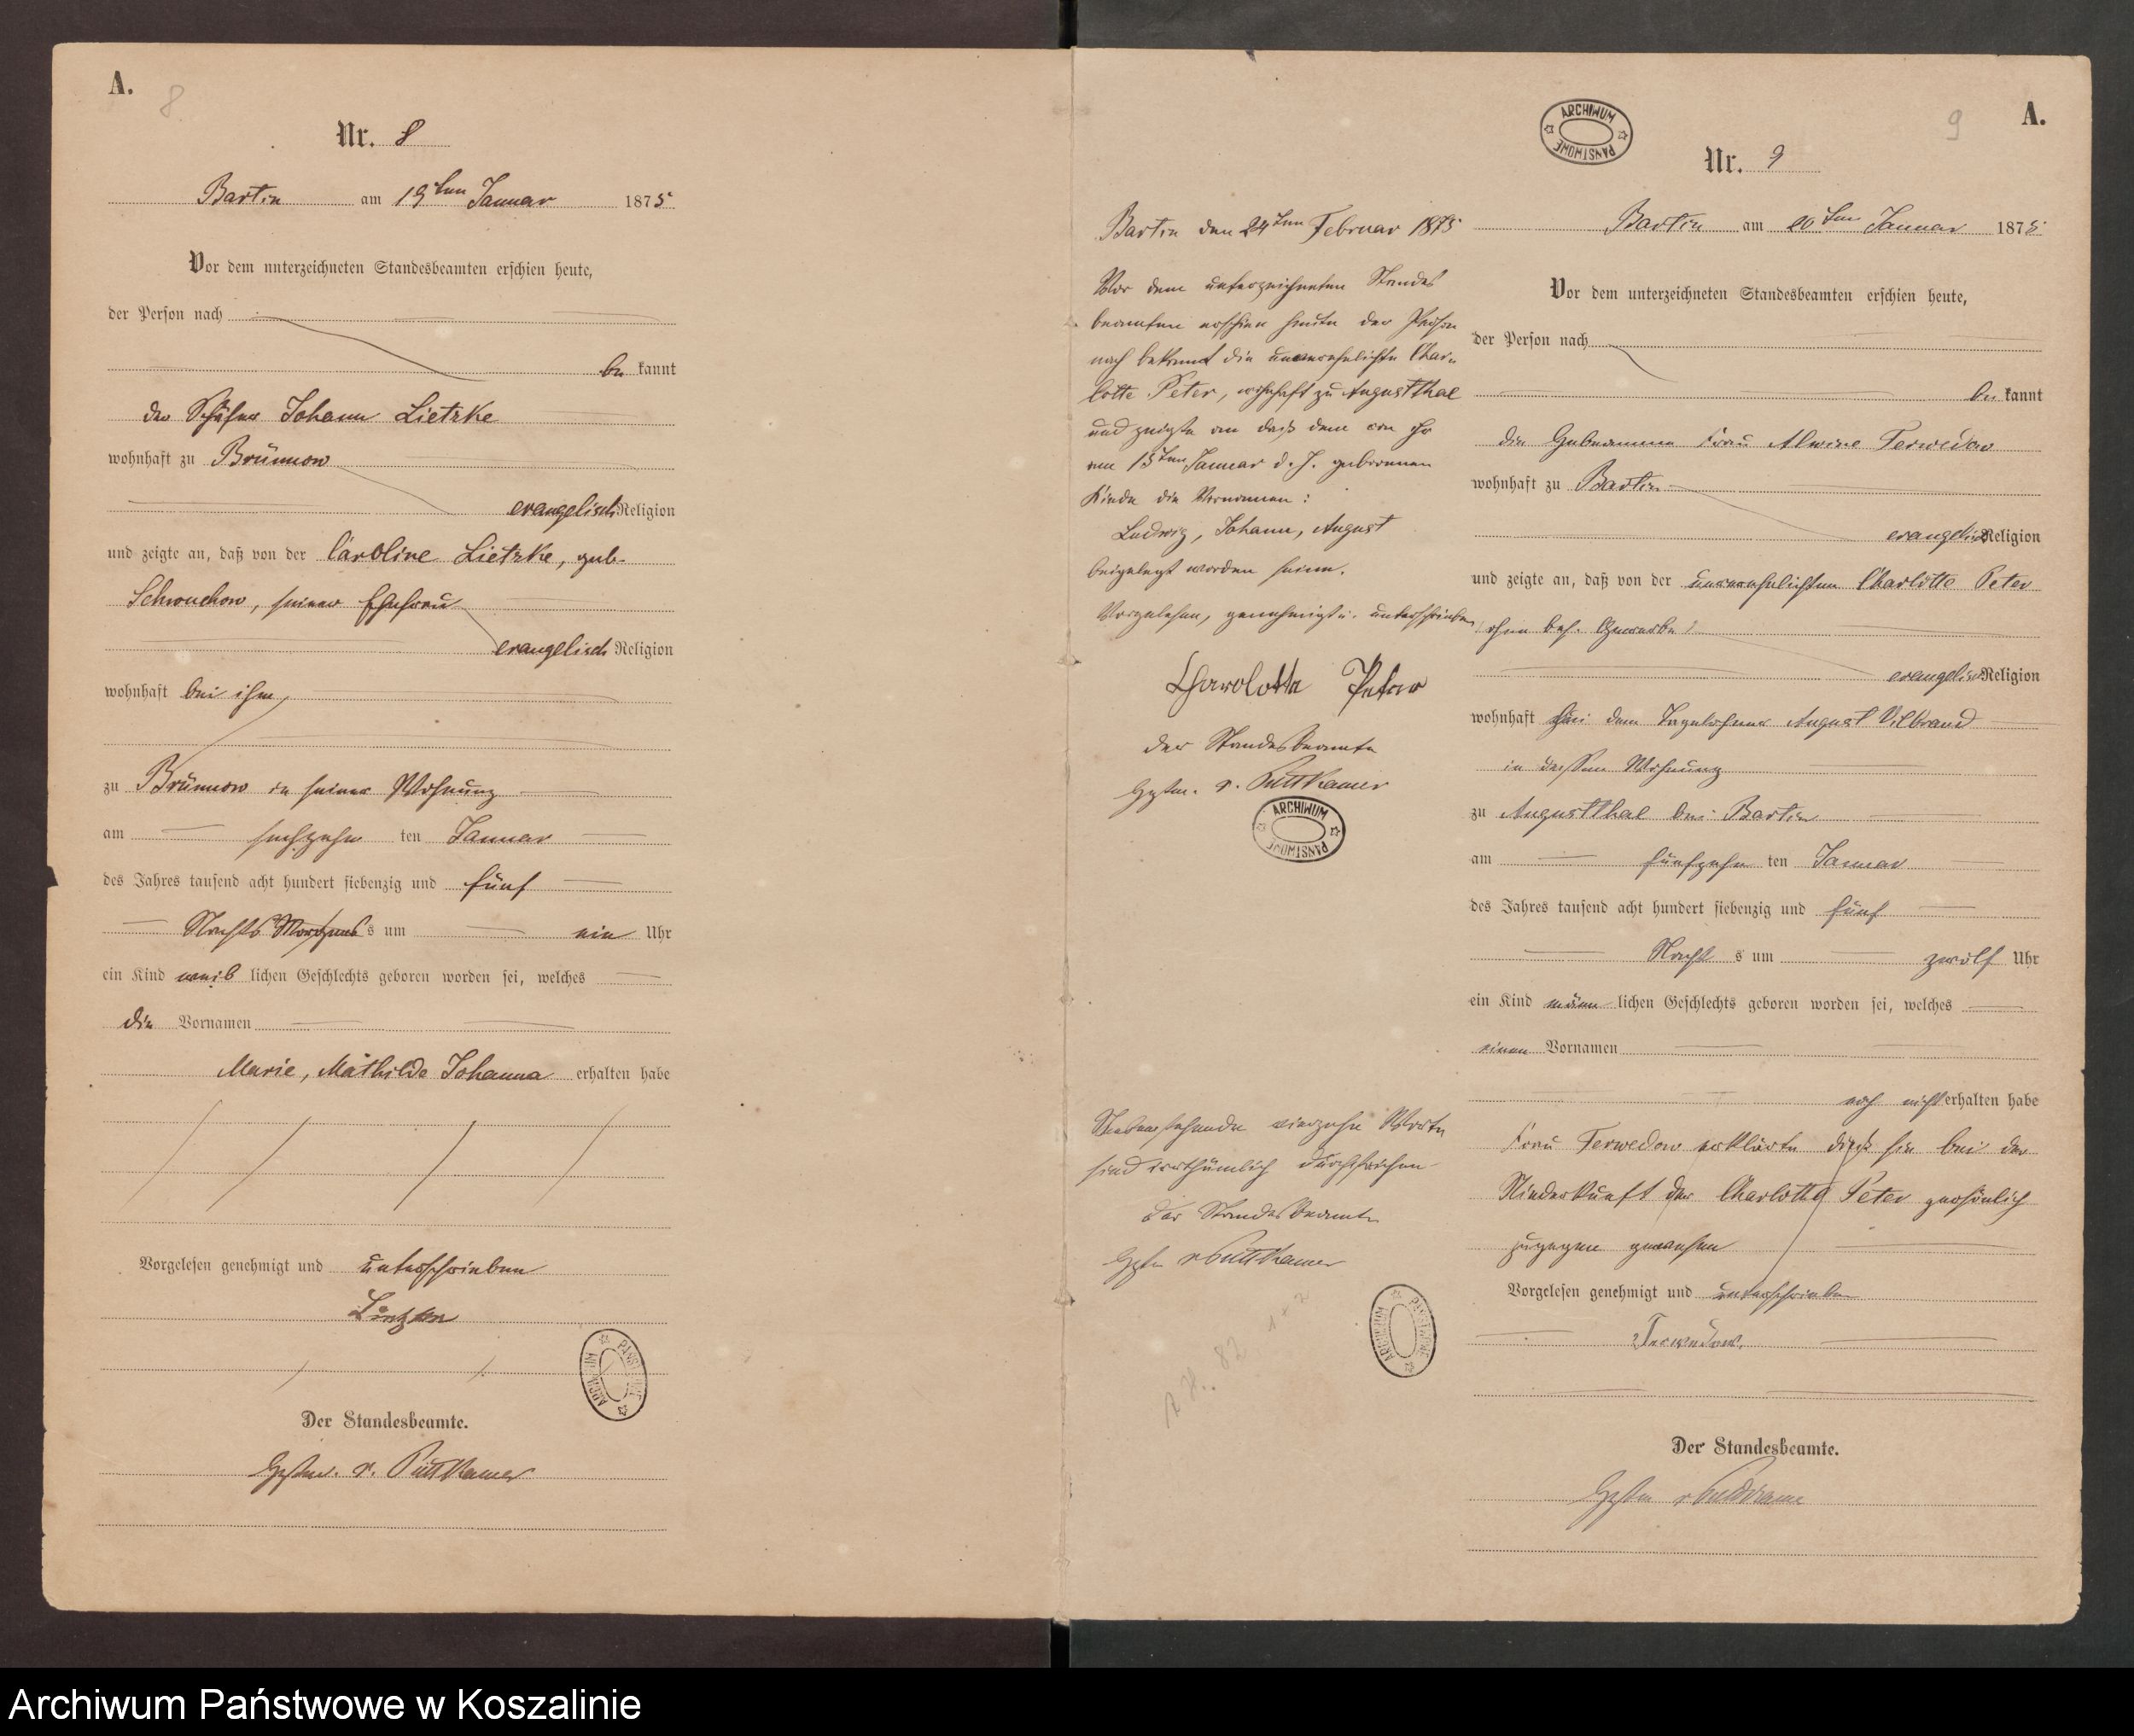 A.
8
Nr. 8
Bartin am 19ten Januar 1875
Vor dem unterzeichneten Standesbeamten erschien heute,
der Person nach
be kannt
der Schäfer Johann Lietzke
wohnhaft zu Brünnow
evangelisch Religion
und zeigte an, daß von der Caroline Lietzke, geb.
Schwuchow, seiner Ehefrau
evangelisch Religion
wohnhaft bei ihm,
zu Brünnow in seiner Wohnung
am sechzehn ten Januar
des Jahres tausend acht hundert siebenzig und fünf
Nachts Morgens s um ein Uhr
ein Kind weib lichen Geschlechts geboren worden sei, welches
die Vornamen
Marie, Mathilde Johanna erhalten habe
Vorgelesen genehmigt und unterschrieben
Lietzke
ARCHIWUM PAŃSTWOWE
Der Standesbeamte.
v. Puttkamer
Bartin den 24ten Februar 1875
Vor dem unterzeichneten Standes
beamten erschien heute der Person
nach bekannt die unverehelichte Char-
lotte Peter, wohnhaft zu Augustthal
und zeigte an daß dem von ihr
am 15ten Januar d. J. geborenen
Kinde die Vornamen:
Ludwig, Johann, August
beigelegt worden seien.
Vorgelesen, genehmigt u. unterschrieben
Charolotte Peter
der Standesbeamte
v. Puttkamer
ARCHIWUM PAŃSTWOWE
Nebenstehende vierzehn Worte
sind irrthümlich durchstrichen
der Standesbeamte
v Puttkamer
ARCHIWUM PAŃSTWOWE
ARCHIWUM PAŃSTWOWE
9
A.
Nr. 9
Bartin am 20ten Januar 1875
Vor dem unterzeichneten Standesbeamten erschien heute,
der Person nach
be kannt
die Hebeamme Frau Alwine Terwedow
wohnhaft zu Bartin
evangelisch Religion
und zeigte an, daß von der unverehelichten Charlotte Peter
ohne bes. Gewerbe
evangelisch Religion
wohnhaft bei dem Tagelöhner August Vilbrand
in dessen Wohnung
zu Augustthal bei Bartin
am fünfzehn ten Januar
des Jahres tausend acht hundert siebenzig und fünf
Nacht s um zwölf Uhr
ein Kind männ lichen Geschlechts geboren worden sei, welches
einen Vornamen
noch nicht erhalten habe
Frau Terwedow erklärte daß sie bei der
Niederkunft der Charlotte Peter persönlich
zugegen gewesen
Vorgelesen genehmigt und unterschrieben
Terwedow.
Der Standesbeamte.
v Puttkamer
Archiwum Państwowe w Koszalinie